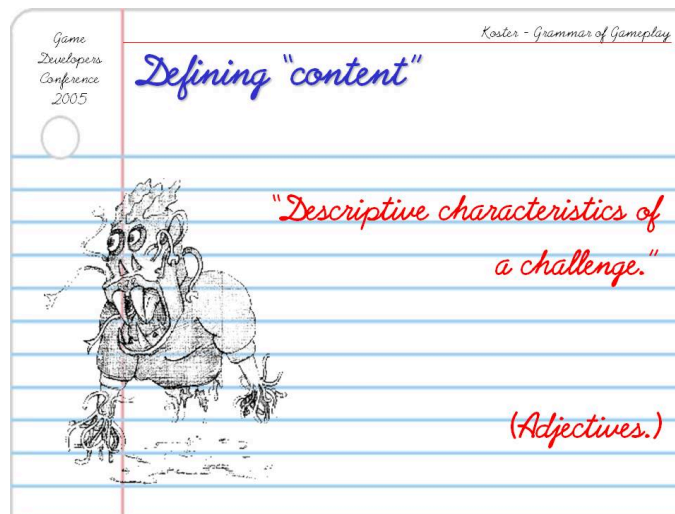 Game
Developers
Conference
2005
Koster - Grammar of Gameplay
Defining "content"
"Descriptive characteristics of
a challenge."
(Adjectives.)